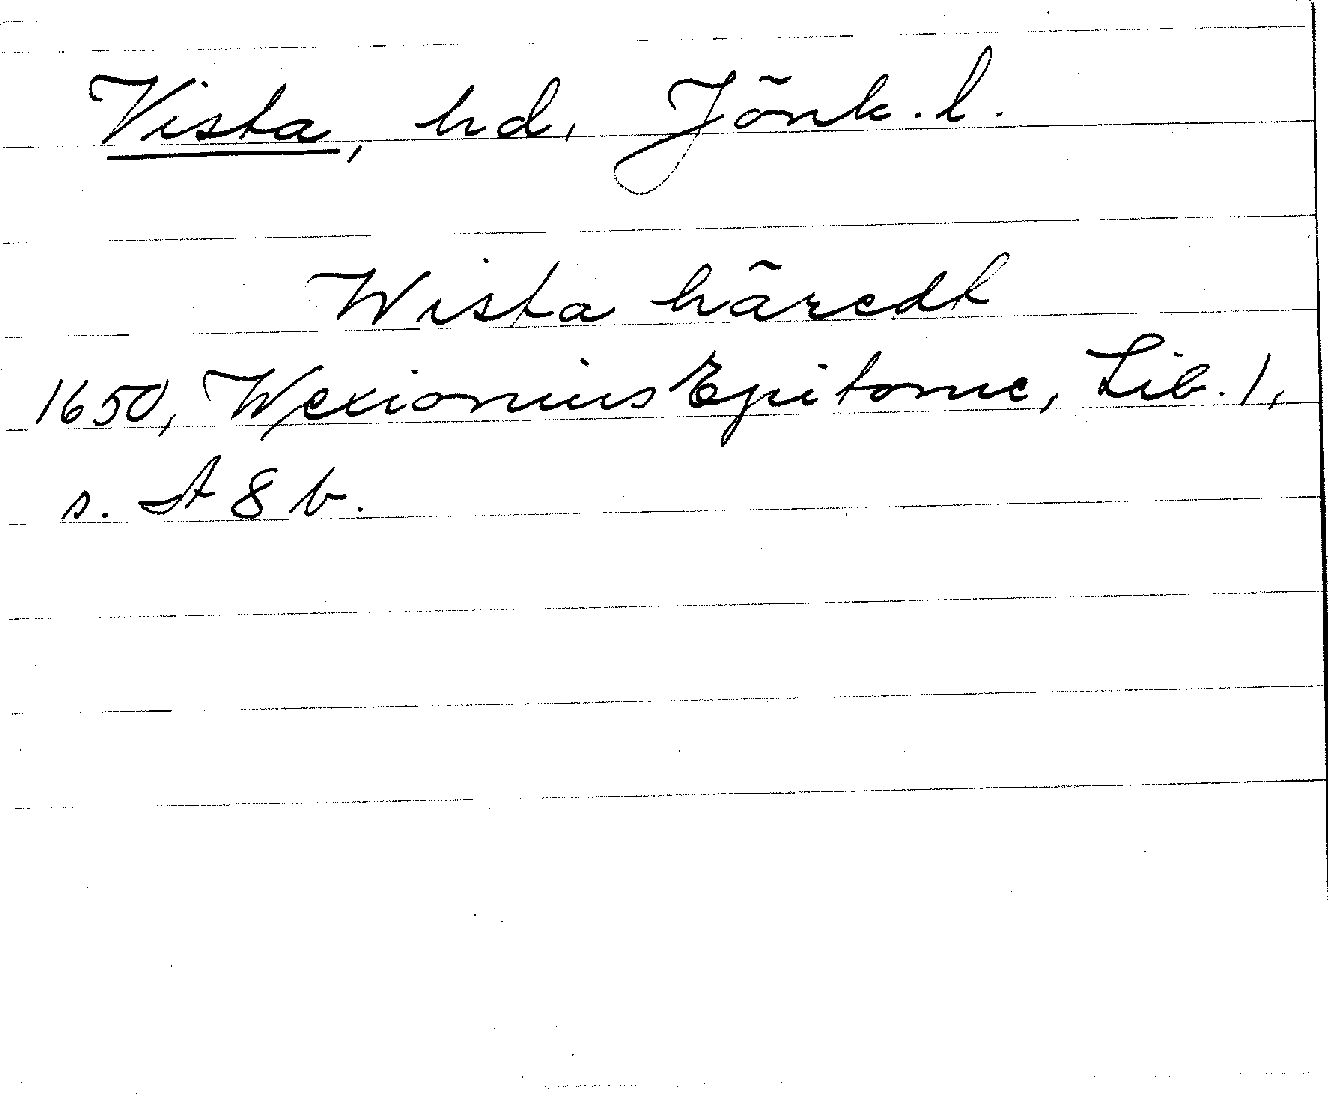 Vista, hd, Jönk. l.
Wista häredt
1650, Wexionius Epitome, Lib. 1,
s. A 8 b.